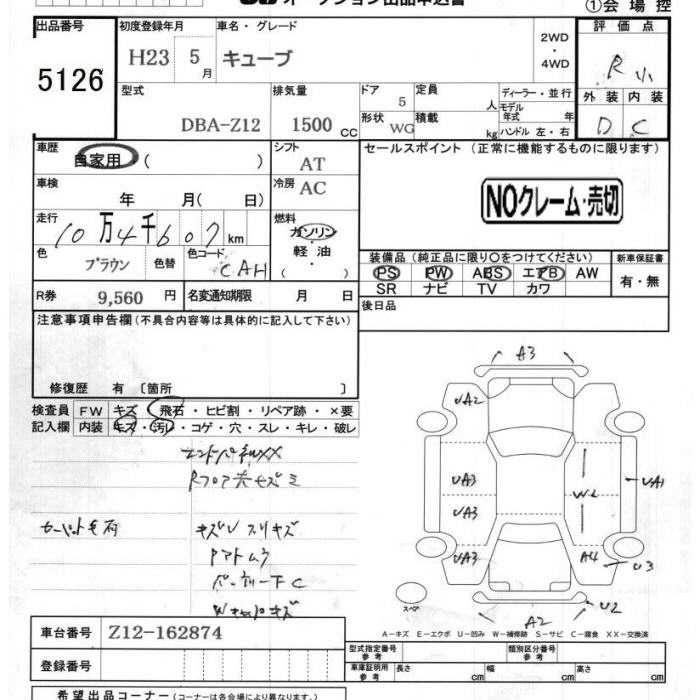 オークション出品申込書
①会場控
出品番号
5126
初度登録年月
H23 5月
車名・グレード
キューブ
2WD・4WD
評価点
R 小
型式
DBA-Z12
排気量
1500 CC
ドア
5
定員
人
形状
WG
積載
kg
ディーラー・並行
モデル年式 年
ハンドル 左・右
外装 内装
D C
車歴
自家用 ( )
シフト
AT
セールスポイント(正常に機能するものに限ります)
車検
年 月( 日)
冷房
AC
NOクレーム・売切
走行
10万4千607km
燃料
ガソリン・軽油・( )
色
ブラウン
色替
色コード
CAH
装備品(純正品に限り○をつけてください)
PS PW ABS エアB AW
SR ナビ TV カワ
新車保証書
有・無
R券 9,560 円
名変通知期限 月 日
後日品
注意事項申告欄(不具合内容等は具体的に記入して下さい)
修復歴 有〔箇所 〕
検査員記入欄
FW キズ・飛石・ヒビ割・リペア跡・×要
内装 キズ・汚れ・コゲ・穴・スレ・キレ・破レ
エンドパネルXX
Rフロア
キズU スリキズ
A3
UA2
UA3
UA3
UA3
W2
UA1
A4
U3
U2
A2
スペア
A-キズ E-エクボ U-凹み W-補修跡 S-サビ C-腐食 XX-交換済
車台番号 Z12-162874
登録番号
型式指定番号 参考
類別区分番号 参考
車庫証明用 参考
長さ cm
幅 cm
高さ cm
希望出品コーナー(コーナーは各会場により異なります。)